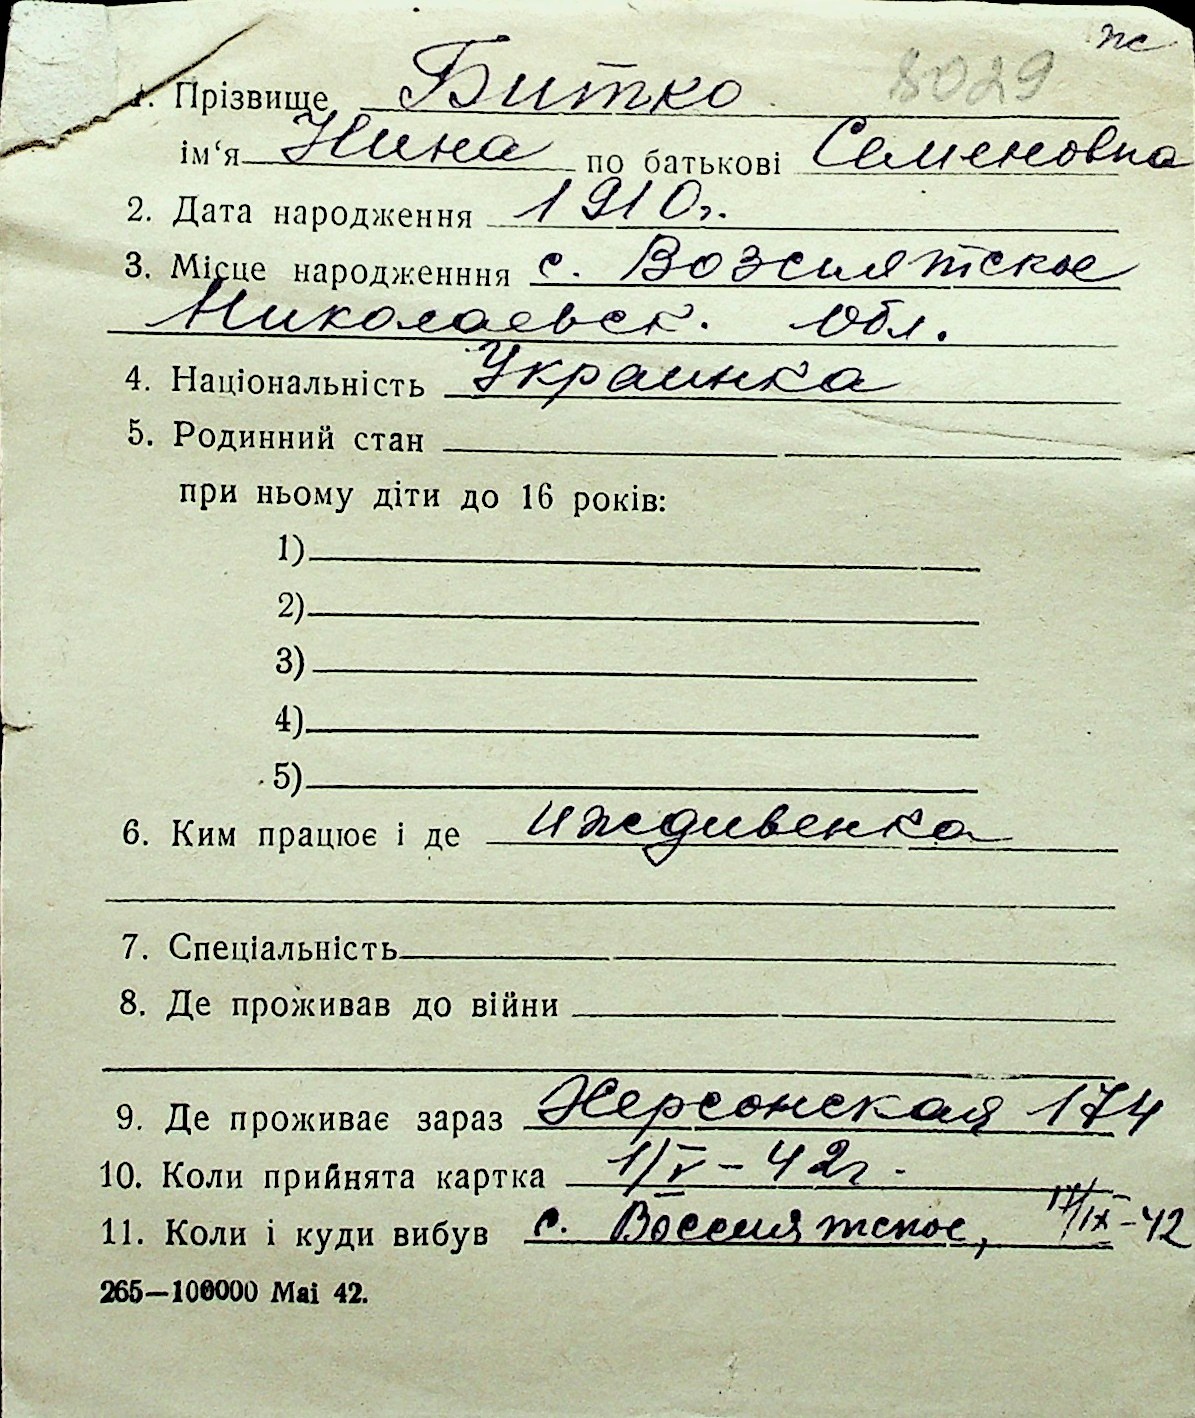 ж
8029
1. Прізвище Битко
ім‘я Нина по батькові Семеновна
2. Дата народження 1910г.
3. Місце народженння с. Возсиятское
Николаевск. Обл.
4. Національність Украинка
5. Родинний стан
при ньому діти до 16 років:
1)
2)
3)
4)
5)
6. Ким працює і де иждивенка
7. Спеціальність
8. Де проживав до війни
9. Де проживає зараз Херсонская 174
10. Коли прийнята картка 1/V – 42г.
11. Коли і куди вибув с. Воссиятское, 17/IX – 42
265—100000 Mai 42.